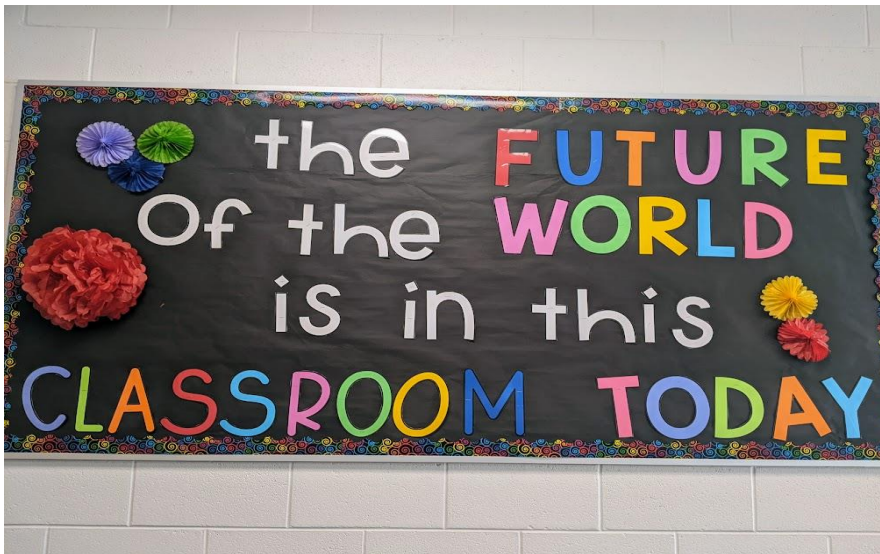 the FUTURE
Of the WORLD
is in this
CLASSROOM TODAY